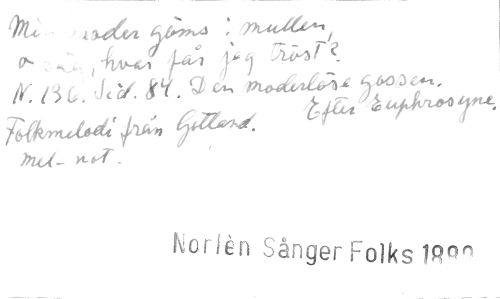 Min moder göms i mullen,
o säg, hvar får jag tröst?
N. 136. Sid. 84. Den moderlöse gossen.
Efter Euphrosyne.
Folkmelodi från Gotland.
mel-not.
Norlèn Sånger Folks